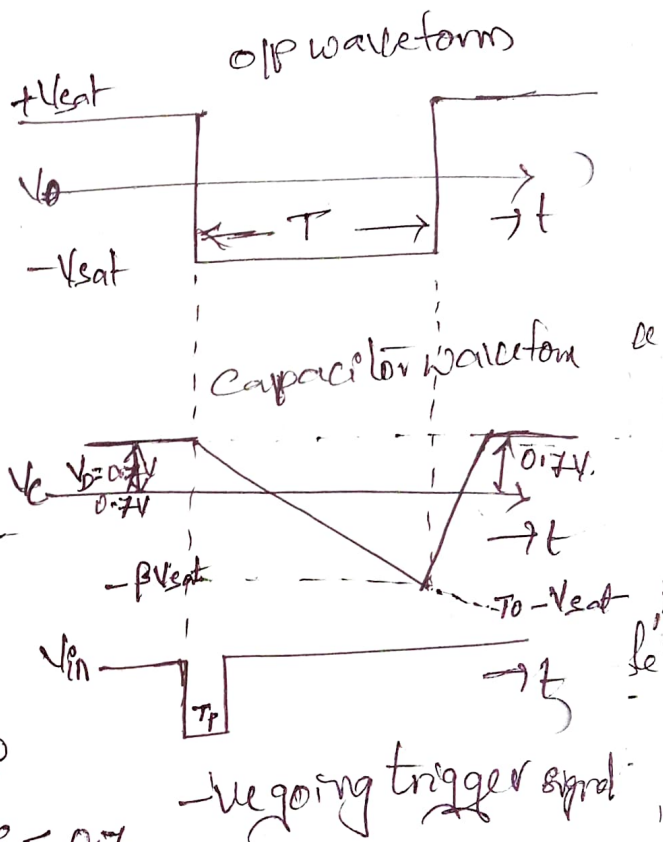 O/P waveform
+Vsat
Vo
T
→ t
-Vsat
Capacitor waveform
Vc VD=0.7V
0.7V
0.7V.
→ t
-βVsat
To -Vsat
Vin
→ t
Tp
-ve going trigger signal